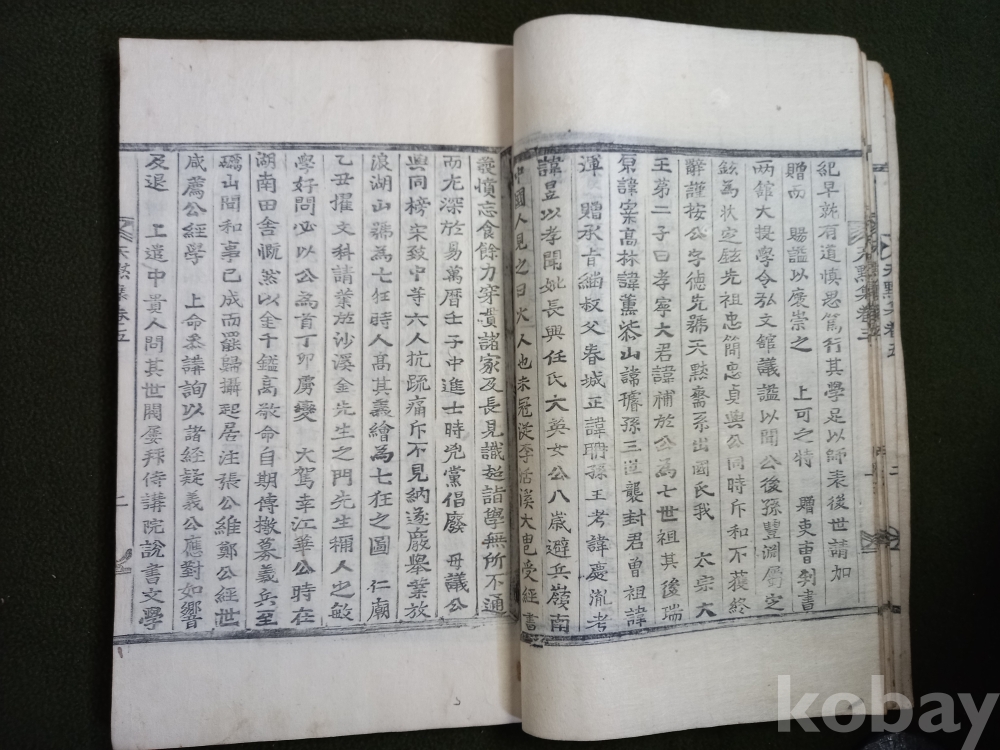 紀早就有道慎思篤行其學足以師表後世請加
贈而 賜謚以慶崇之 上可之特 贈吏曹判書
兩館大提學令弘文館議謚以聞公後孫豐淵屬定
鉉爲狀定鉉先祖忠簡忠貞與公同時斥和不獲終
辭謹按公字德先號天默齋系出國氏我 太宗大
王第二子曰孝寧大君諱補於公爲七世祖其後瑞
原諱案高林諱薰 山諱 孫三 襲封君曾祖諱
渾 贈承旨 叔父春城正諱 孫王考諱慶胤考
諱昱以孝聞妣長興任氏大英女公八歲避兵嶺南
中國人見之曰火人也未冠從李 溪大 受經書
發憤忘食餘力穿貫諸家及長見識超詣學無所不通
而尤深於易萬曆壬子中進士時凶黨倡廢 母議公
與同榜宋致中等六人抗疏痛斥不見納遂廢擧業放
浪湖山號爲七狂時人高其義繪爲七狂之圖 仁廟
乙丑擢文科請業於沙溪金先生之門先生稱人之敏
學好問必以公爲首丁卯虜變 大駕幸江華公時在
湖南田舍慨然以金千鎰高敬命自期傳檄募義兵至
礪山聞和事已成而罷歸攝起居注張公維鄭公經世
咸薦公經學 上命 講詢以諸經疑義公應對如響
及退 上遣中貴人問其世閥屢拜侍講院說書文學
天默集卷五
二
kobay